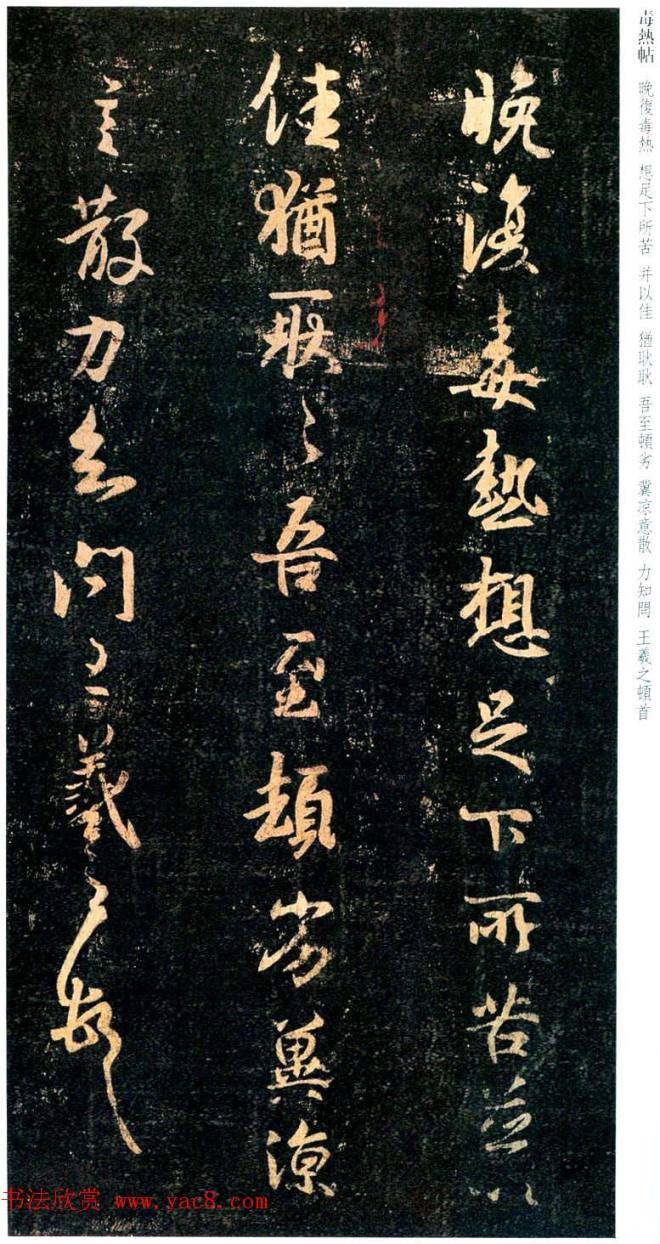 毒熱帖 晚復毒熱 想足下所苦 并以佳 猶耿耿 吾至頓劣 冀凉意散 力知問 王羲之頓首
晚復毒熱想足下所苦並以
佳猶耿〻吾至頓劣冀涼
意散力知問王羲之頓首
书法欣赏 www.yac8.com